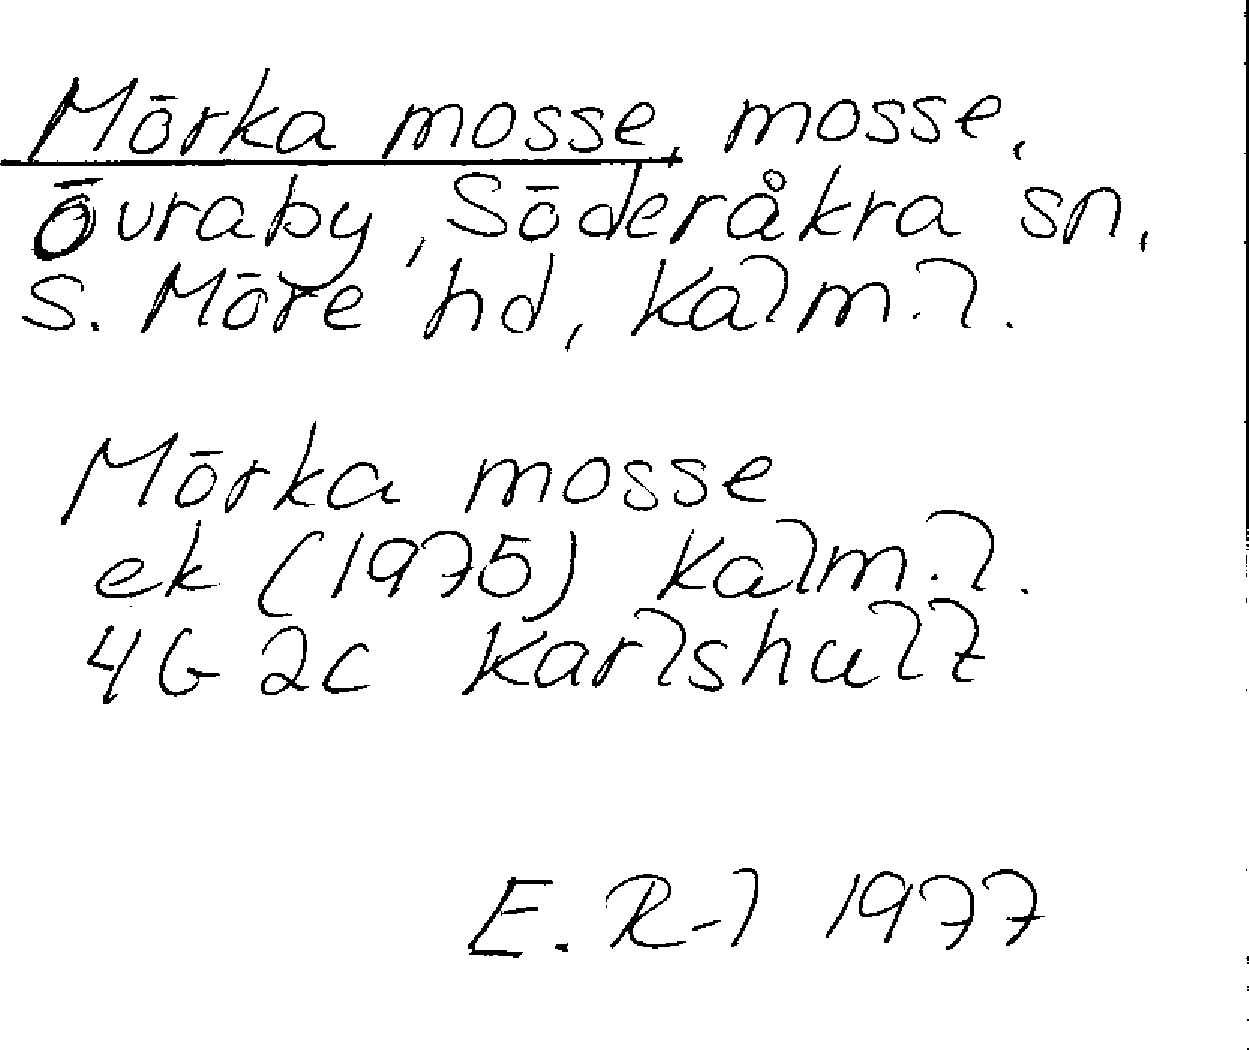 Mörka mosse, mosse,
Övraby, Söderåkra sn,
S. Möre hd, Kalm.l.
Mörka mosse
ek (1975) Kalm.l.
4G 2c Karlshult
E. R-l 1977